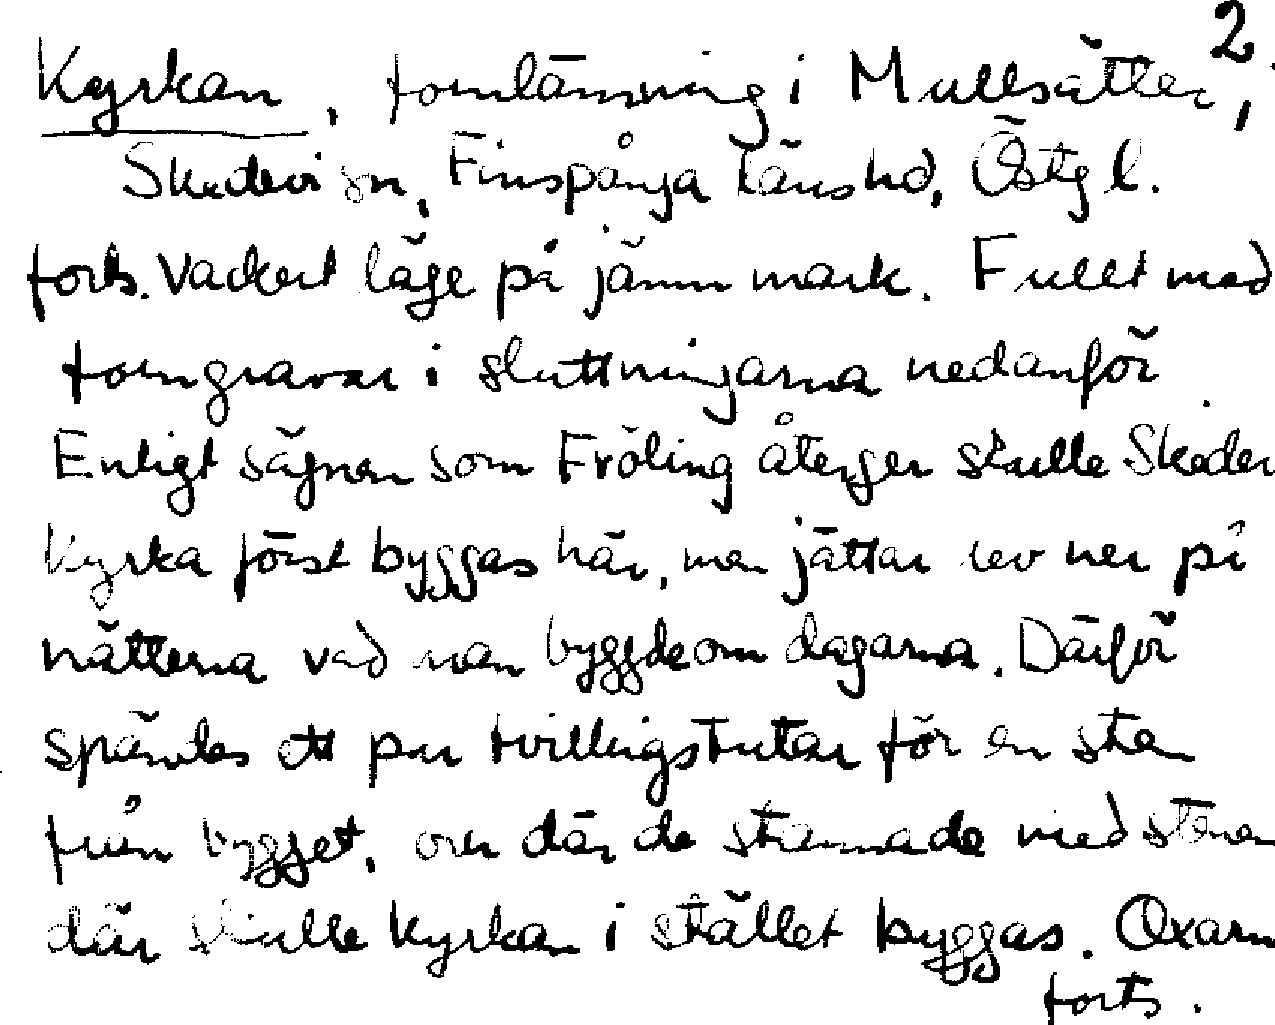 2.
Kyrkan, fornlämning i Mullsätter,
Skedevi sn, Finspånga läns hd, Östgl.
forts. Vackert läge på jämn mark. Fullt med
forngravar i sluttningarna nedanför.
Enligt sägnen som Fröling återger skulle Skeder
Kyrka först byggas här, men jättar rev ner på
nätterna vad man byggde om dagarna. Därför
spändes ett par tvillingstutar för en sten
från bygget, och där de stannade med stenen
där skulle kyrkan i stället byggas. Oxarn
forts.